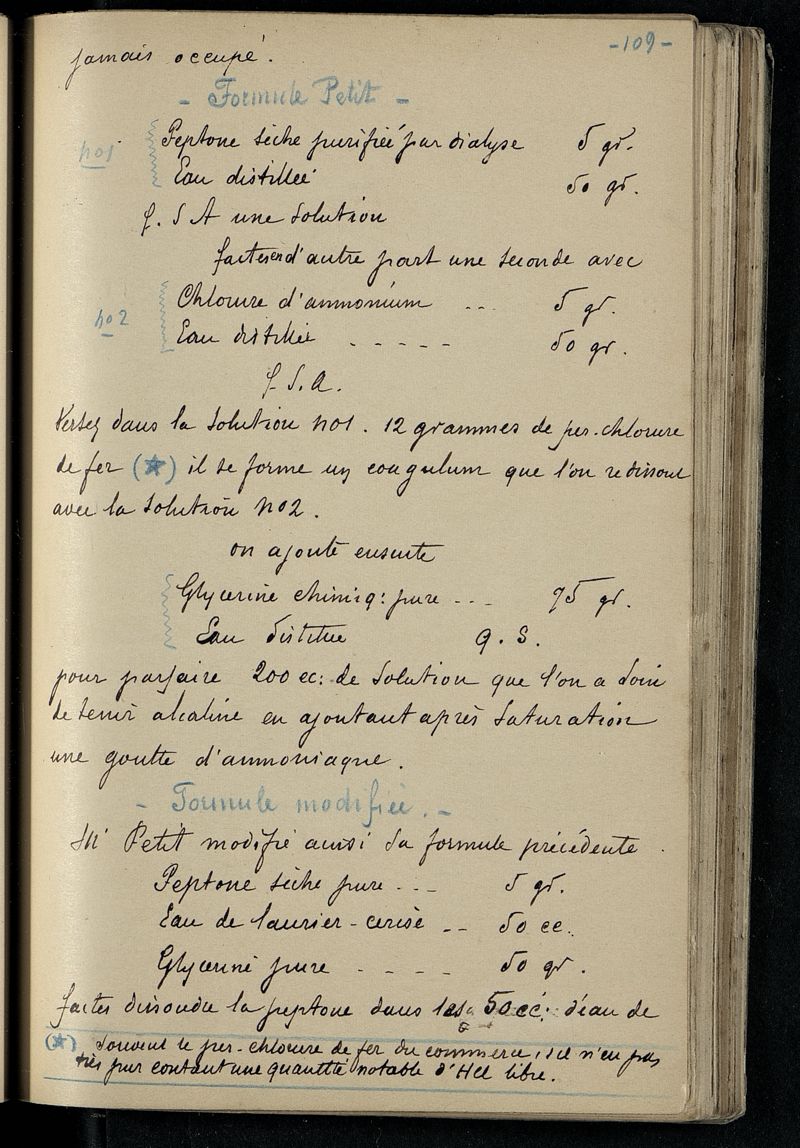 -109-
jamais occupé.
- Formule Petit -
no1 Peptone sèche purifiée par dialyse 5 gr.
Eau distillée 50 gr.
f. S A une solution
faites en d'autre part une seconde avec
no 2 Chlorure d'ammonium -- 5 gr.
Eau distillée ----- 50 gr.
f. S. A.
Versez dans la solution no1. 12 grammes de per-chlorure
de fer (☆) il se forme un coagulum que l'on redissout
avec la solution no2.
on ajoute ensuite
Glycerine chimiq: pure --- 75 gr.
Eau distillée Q. S.
pour parfaire 200 cc: de solution que l'on a soin
de tenir alcaline en ajoutant après saturation
une goutte d'ammoniaque.
- Formule modifiée. -
Mr Petit modifie ainsi sa formule précédente.
Peptone sèche pure --- 5 gr.
Eau de laurier-cerise -- 50 cc.
Glycerine pure ---- 50 gr.
faites dissoudre la peptone dans les 50 cc: d'eau de
(☆) Souvent le per-chlorure de fer du commerce, s'il n'en pas
très pur contient une quantité notable d'Hcl libre.